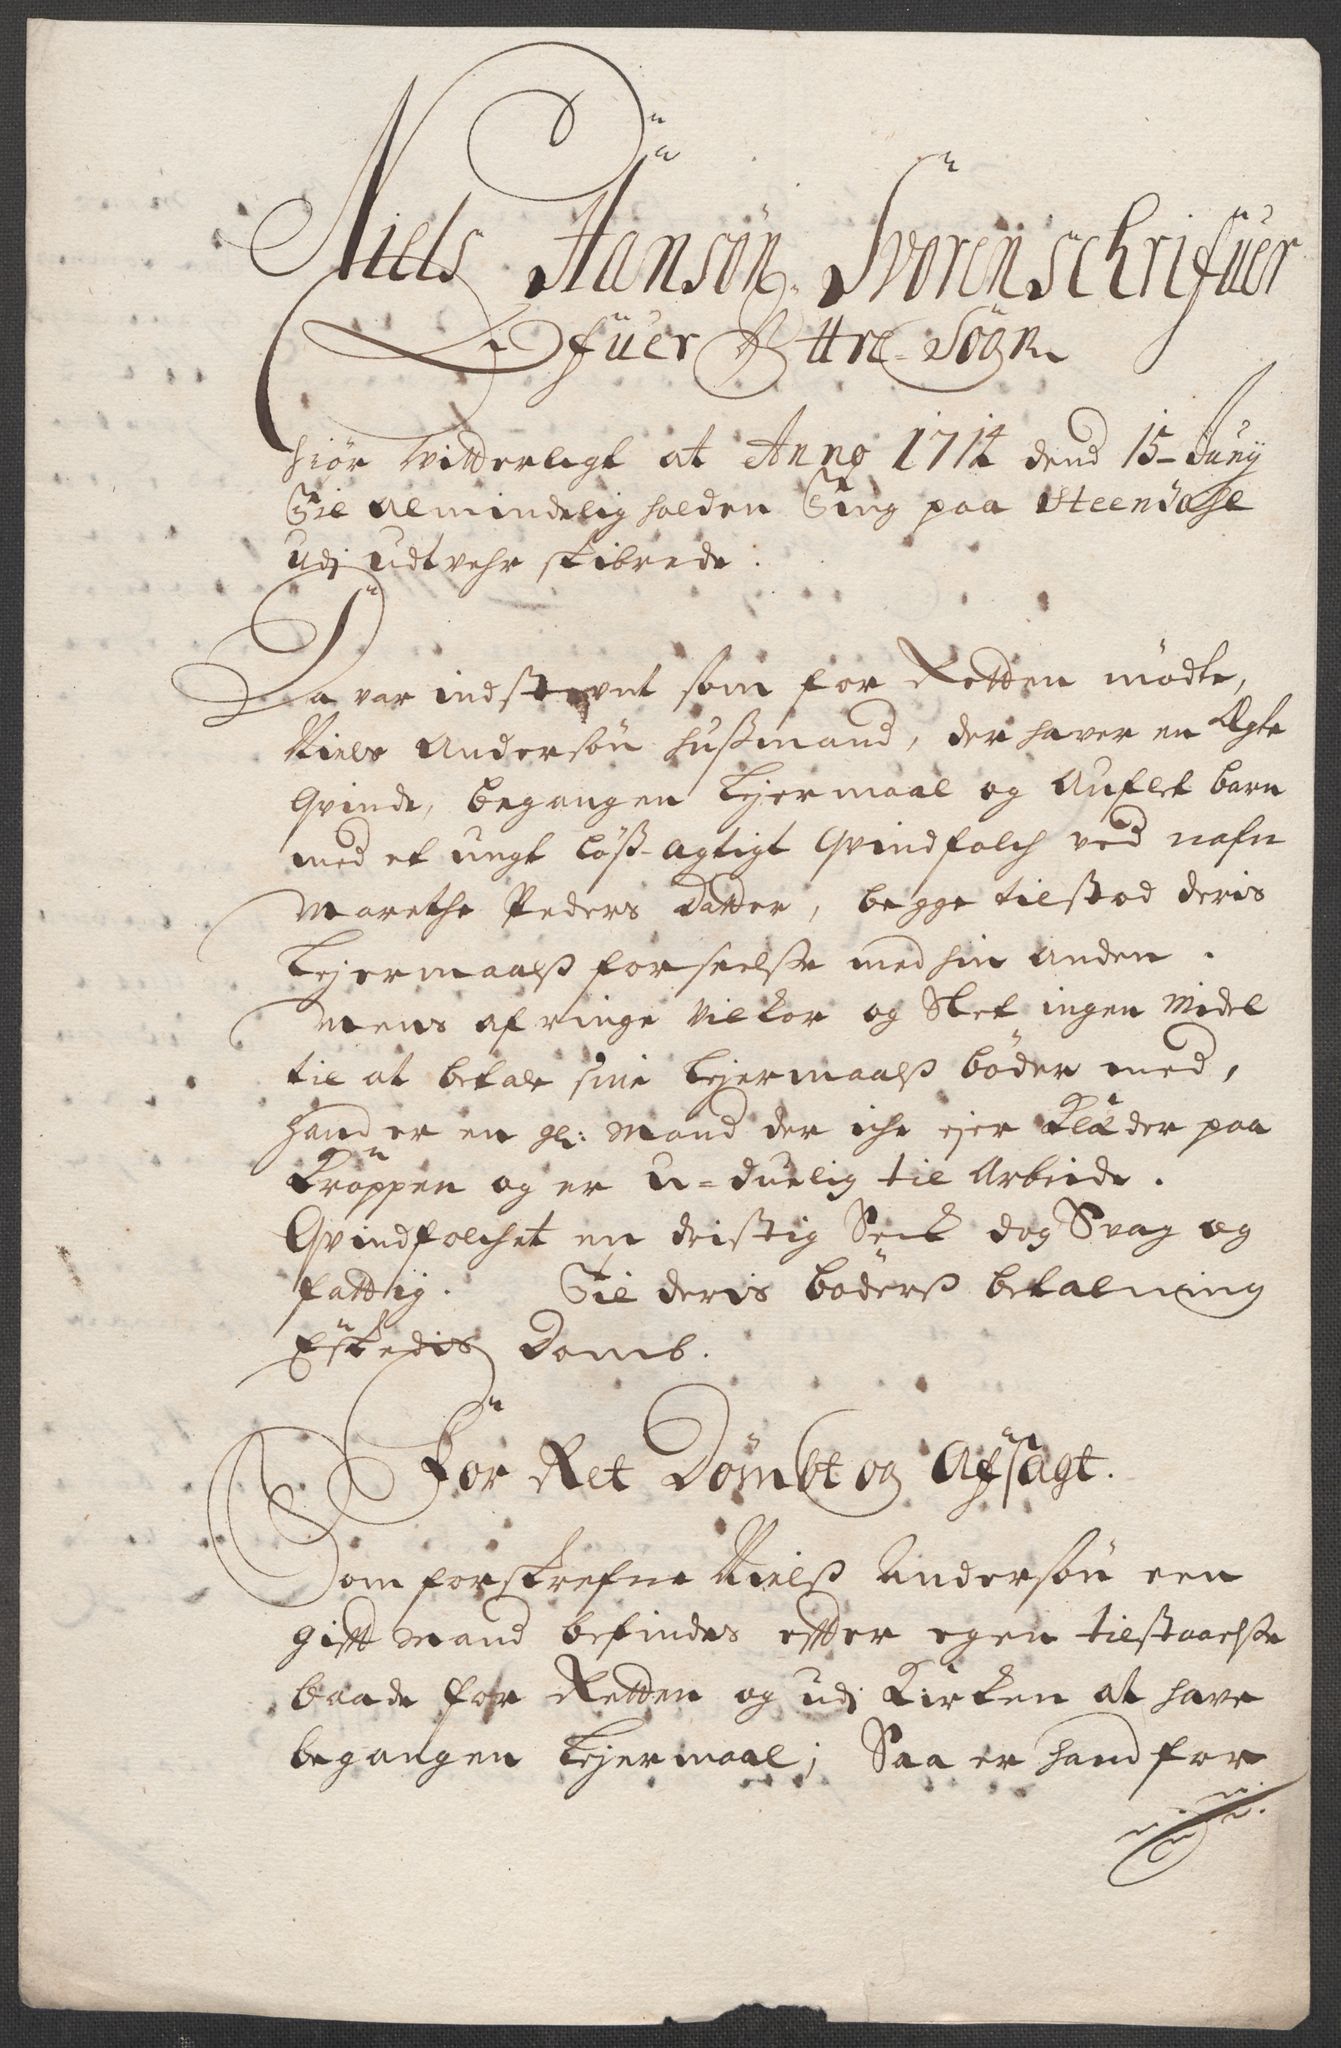 Niels Hansön Svorenschrifuer
ofuer Ÿttre Sögn
Giör vitterligt at Anno 1714 dend 15 Junÿ
Til almindelig holden Ting paa Steendahl
udj udtvehr skibrede.
Da var indstevnt som for Retten mödte,
Niels Andersön Hussmand, der haver en Ægte
Qvinde, begangen Lejermaal og Auflet barn
med et ungt löss-agtigt Qvindfolch ved nafn
Marethe Peders Datter, begge tilstod deris
Lejermaalss forseelsse med hin anden.
Mens af ringe vilkor og slet ingen Midel
til at betale sine Lejermaalss böder med,
Hand er en gl: Mand der iche ejer Klæder paa
Kroppen og er u-duelig til Arbeide.
Qvindfolchet en dristig Seck dog Svag og
fattig. Til deris böderss betalning
Eskedis Domb.
For Ret Dömbt og Afsagt.
Som forskrefne Nielss Andersön een
gift Mand befindes efter egen tilstaaelsse
baade for Retten og udj Kirken at have
begangen Lejermaal; Saa er hand for